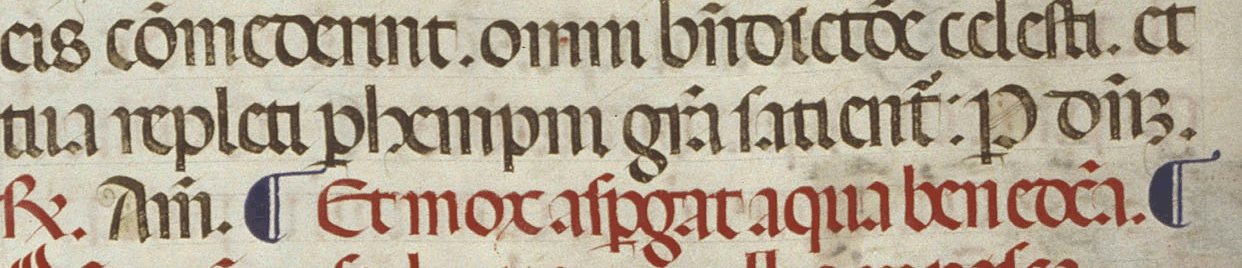 eis cōmederint. omni bn̄dictōe celesti. et
tua repleti ꝑhempni grā satient᷑: P dn̄ꝫ.
℟. Am̄. ¶ Et mox asꝑgat aqua benedcā̄. ¶